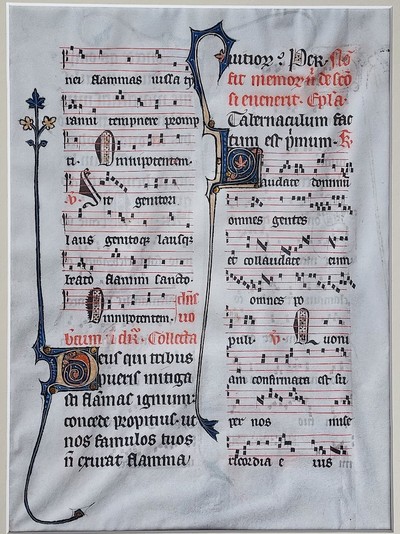 nei flammas iussa ty
ranni tempnere promp
ti. Omnipotentem.
V. Sit genitori
laus genitoq; lausq;
beato flamini sancto.
Omnipotentem.
Collecta
Deus qui tribus
pueris mitiga
sti flamas ignium:
concede propitius. ut
nos famulos tuos
n̄ exurat flamma
uitioꝝ. Per. No
fit memor de sco
si euenerit. Epla.
Tabernaculum fac
tum est pimum. R
Laudate dominu
omnes gentes
et collaudate eum
omnes po
puli. V. Quoni
am confirmata est su
per nos mise
ricordia e ius